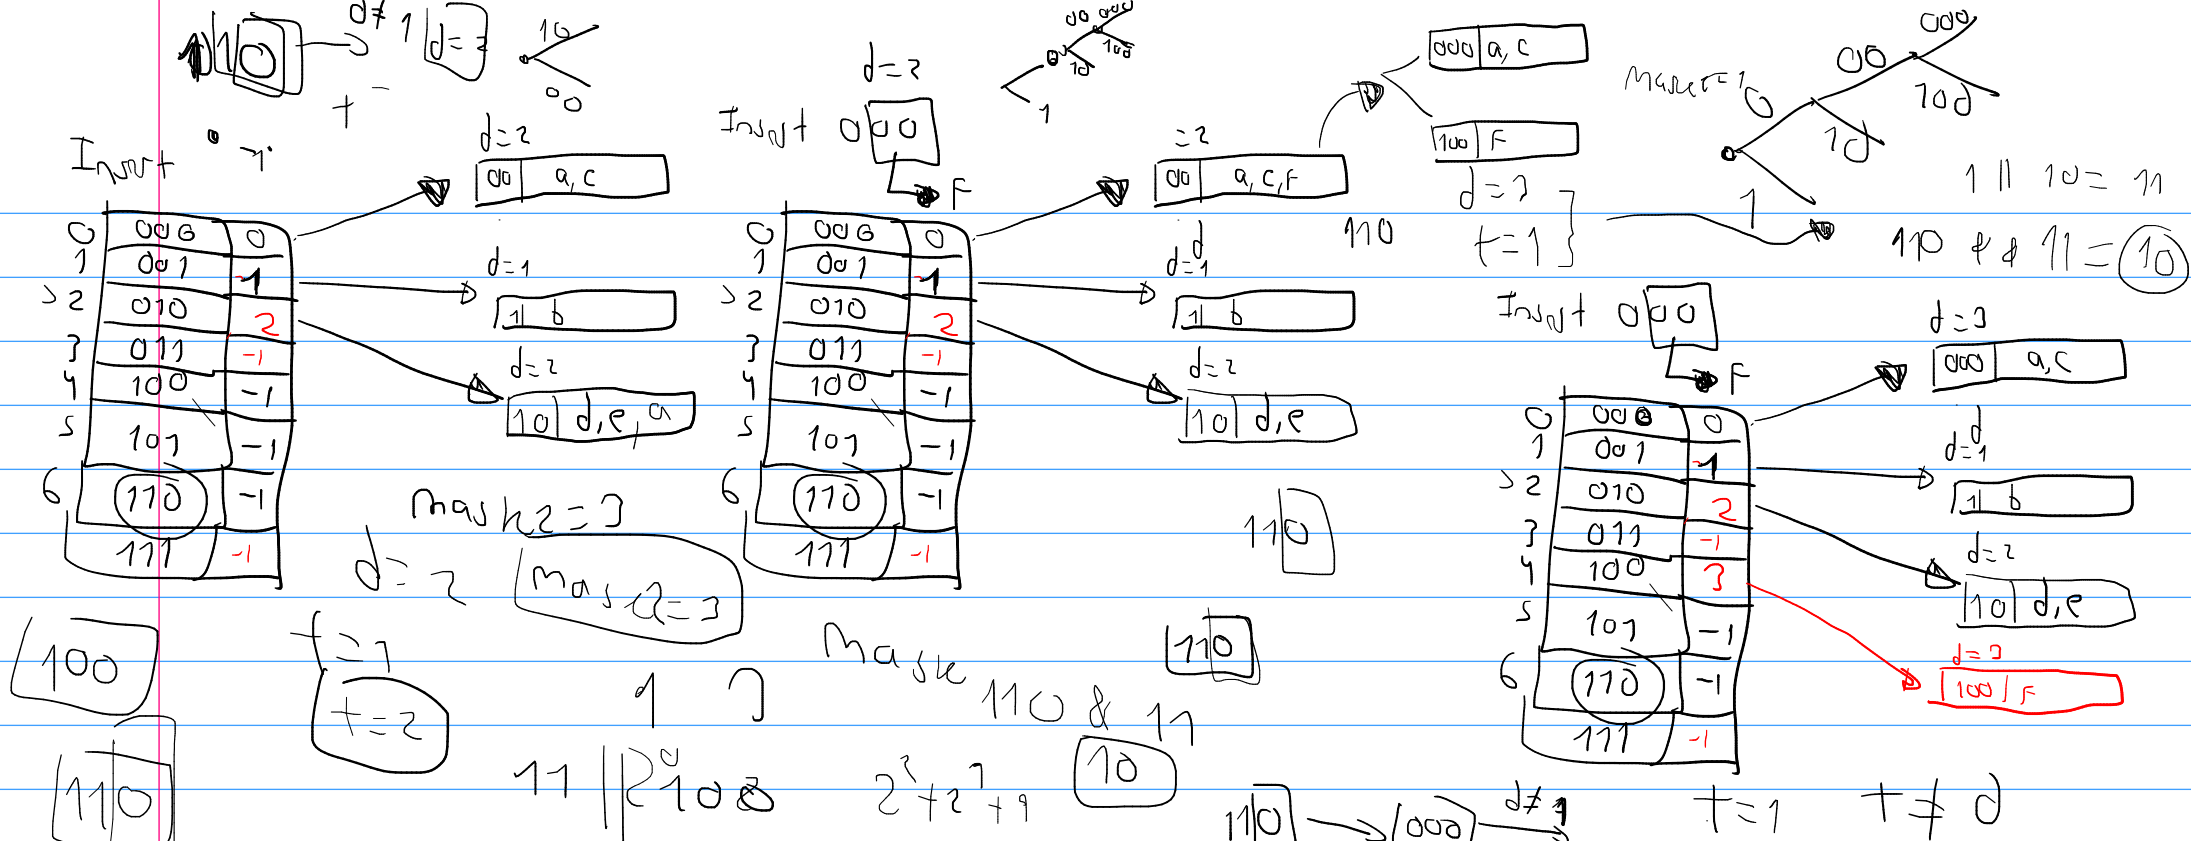 110
d≠1
d=2
10
00
t
Insert
d=2
00 a,c
0 000 0
1 001 -1
2 010 2
3 011 -1
4 100 -1
5 101 -1
6 110 -1
111 -1
d=1
1 b
d=2
10 d,e,a
mask2=3
d=2
mask2=3
100
t=1
t=2
110
1
11 ||
00 000
100
0
10
1
d=2
Insert 000
F
=2
00 a,c,F
0 000 0
1 001 -1
2 010 2
3 011 -1
4 100 -1
5 101 -1
6 110 -1
111 -1
d
d=1
1 b
d=2
10 d,e
110
mask
110
110 & 11
10
2²+2¹+1
000 a,c
100 F
d=3
t=1
110
000
00
100
mask=1
0
10
1
1 || 10 = 11
110 && 11 = 10
Insert 000
F
d=3
000 a,c
0 000 0
1 001 -1
2 010 2
3 011 -1
4 100 3
5 101 -1
6 110 -1
111 -1
d
d=1
1 b
d=2
10 d,e
d=3
100 F
110
000
d≠1
t=1
t≠d